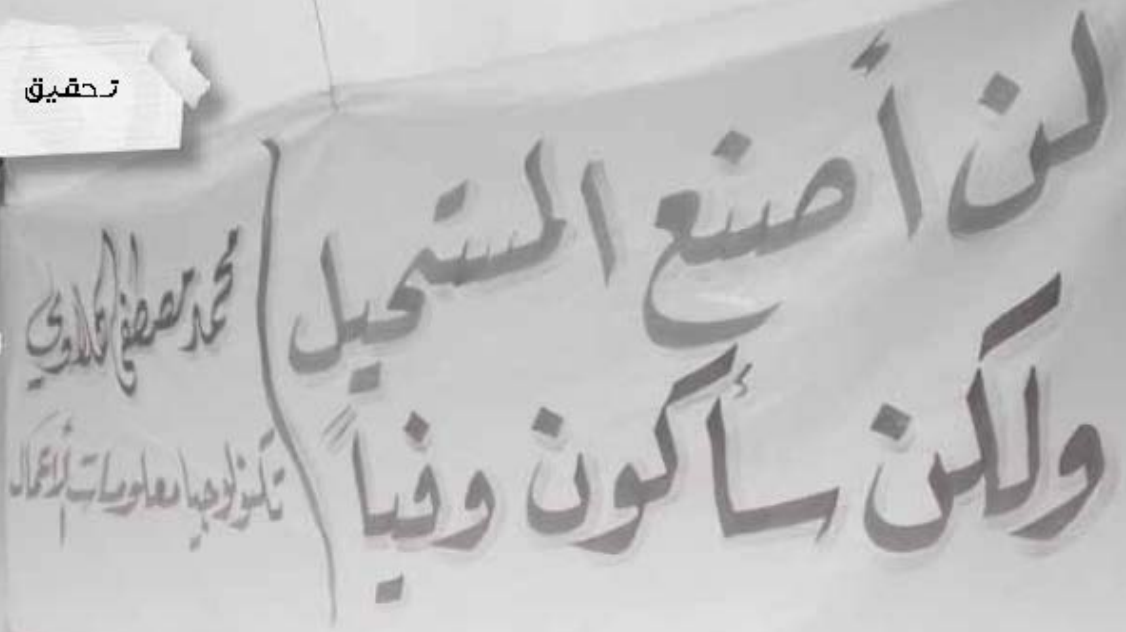 تحقيق
لن أصنع المستحيل
ولكن سأكون وفياً
محمد مصطفى
تكنولوجيا معلومات الأعمال